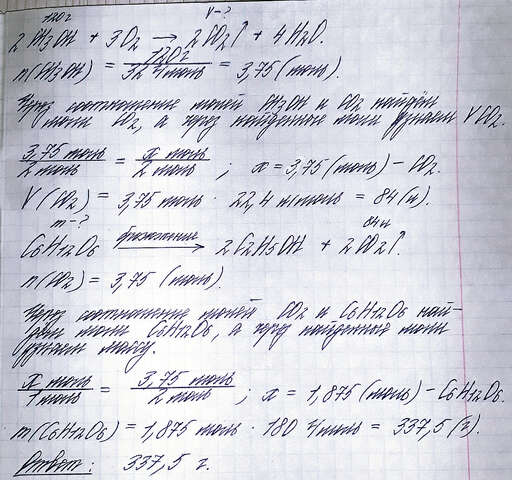 120г V-?
2 CH3OH + 3O2 → 2CO2↑ + 4H2O.
n(CH3OH) = 120г / 32 г/моль = 3,75 (моль).
Через соотношение молей CH3OH и CO2 найдём
моли CO2, а через найденные моли узнаем V CO2.
3,75 моль / 2 моль = x моль / 2 моль ; x = 3,75 (моль) – CO2.
V(CO2) = 3,75 моль · 22,4 л/моль = 84 (л).
m-? 84л
C6H12O6 брожение → 2C2H5OH + 2CO2↑.
n(CO2) = 3,75 (моль).
Через соотношение молей CO2 и C6H12O6 най-
дём моли C6H12O6, а через найденные моли
узнаем массу.
x моль / 1 моль = 3,75 моль / 2 моль ; x = 1,875 (моль) – C6H12O6.
m(C6H12O6) = 1,875 моль · 180 г/моль = 337,5 (г).
Ответ: 337,5 г.